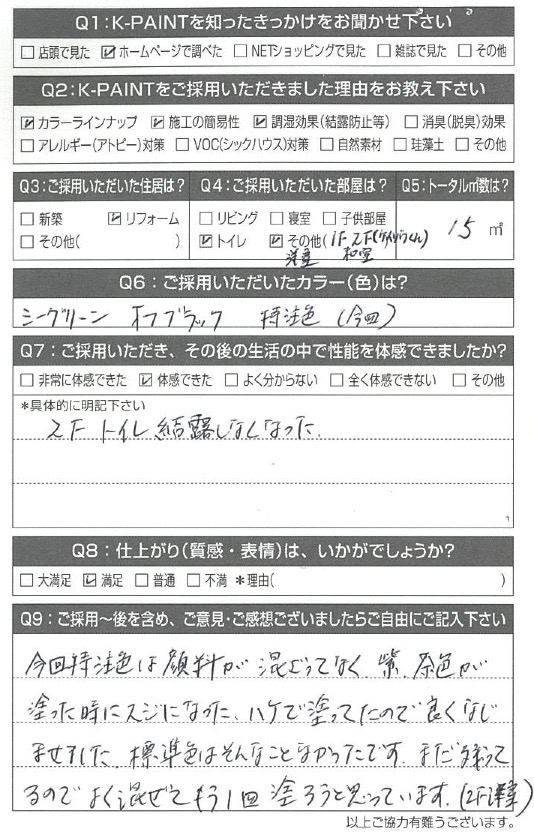 Q1:K-PAINTを知ったきっかけをお聞かせ下さい
□店頭で見た ☑ホームページで調べた □NETショッピングで見た □雑誌で見た □その他
Q2:K-PAINTをご採用いただきました理由をお教え下さい
☑カラーラインナップ ☑施工の簡易性 ☑調湿効果(結露防止等) □消臭(脱臭)効果
□アレルギー(アトピー)対策 □VOC(シックハウス)対策 □自然素材 □珪藻土 □その他
Q3:ご採用いただいた住居は? Q4:ご採用いただいた部屋は? Q5:トータル㎡数は?
□新築 ☑リフォーム □リビング □寝室 □子供部屋 15㎡
□その他( ) ☑トイレ ☑その他(1F 2F
洋室 和室
Q6:ご採用いただいたカラー(色)は?
シーグリーン オフブラック 特注色(今回)
Q7:ご採用いただき、その後の生活の中で性能を体感できましたか?
□非常に体感できた ☑体感できた □よく分からない □全く体感できない □その他
*具体的に明記下さい
2F トイレ 結露しなくなった.
Q8:仕上がり(質感・表情)は、いかがでしょうか?
□大満足 ☑満足 □普通 □不満 *理由( )
Q9:ご採用～後を含め、ご意見・ご感想ございましたらご自由にご記入下さい
今回特注色は顔料が混ざってなく、紫、茶色が
塗った時にスジになった、ハケで塗ってたので良くなじ
ませました、標準色はそんなことなかったです、まだ残って
るのでよく混ぜてもう1回塗ろうと思っています.(2F洋室)
以上ご協力有難うございます。